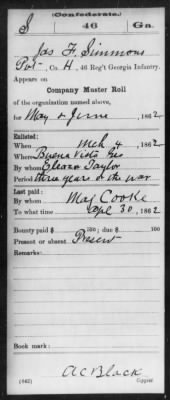 (Confederate.)
S 46 Ga.
Jas F. Simmons
Pvt., Co. H, 46 Reg't Georgia Infantry.
Appears on
Company Muster Roll
of the organization named above,
for May & June, 1862.
Enlisted:
When Mch 4, 1862.
Where Buena Vista Geo
By whom Eleazr Taylor
Period three years or the war
Last paid:
By whom Maj Cooke
To what time Apl 30, 1862.
Bounty paid $ 100; due $ 100
Present or absent Present
Remarks:
Book mark:
A C Black
(642) Copyist.